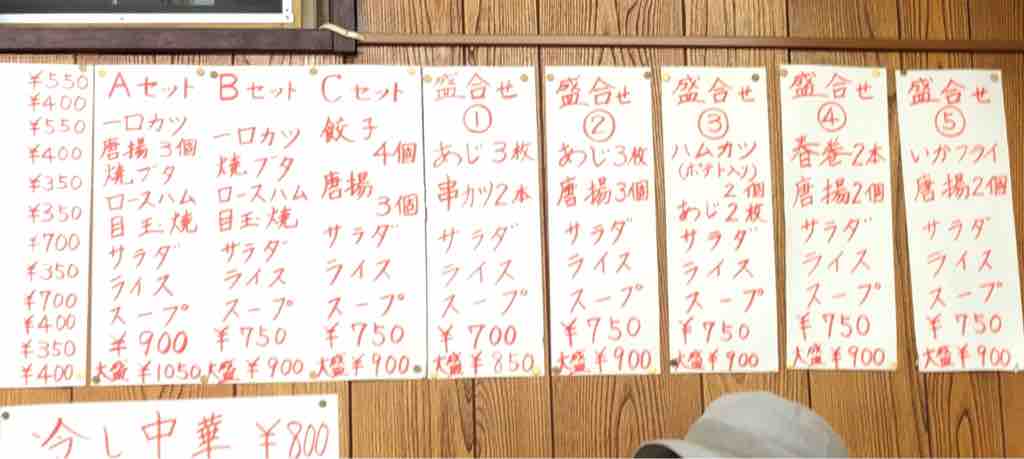 ¥550
¥400
¥550
¥400
¥350
¥350
¥700
¥350
¥700
¥400
¥350
¥400
Aセット
一口カツ
唐揚3個
焼ブタ
ロースハム
目玉焼
サラダ
ライス
スープ
¥900
大盛¥1050
Bセット
一口カツ
焼ブタ
ロースハム
目玉焼
サラダ
ライス
スープ
¥750
大盛¥900
Cセット
餃子
4個
唐揚
3個
サラダ
ライス
スープ
¥750
大盛¥900
盛合せ
①
あじ3枚
串カツ2本
サラダ
ライス
スープ
¥700
大盛¥850
盛合せ
②
あじ3枚
唐揚3個
サラダ
ライス
スープ
¥750
大盛¥900
盛合せ
③
ハムカツ
(ポテト入り)
2個
あじ2枚
サラダ
ライス
スープ
¥750
大盛¥900
盛合せ
④
春巻2本
唐揚2個
サラダ
ライス
スープ
¥750
大盛¥900
盛合せ
⑤
いかフライ
唐揚2個
サラダ
ライス
スープ
¥750
大盛¥900
冷し中華 ¥800